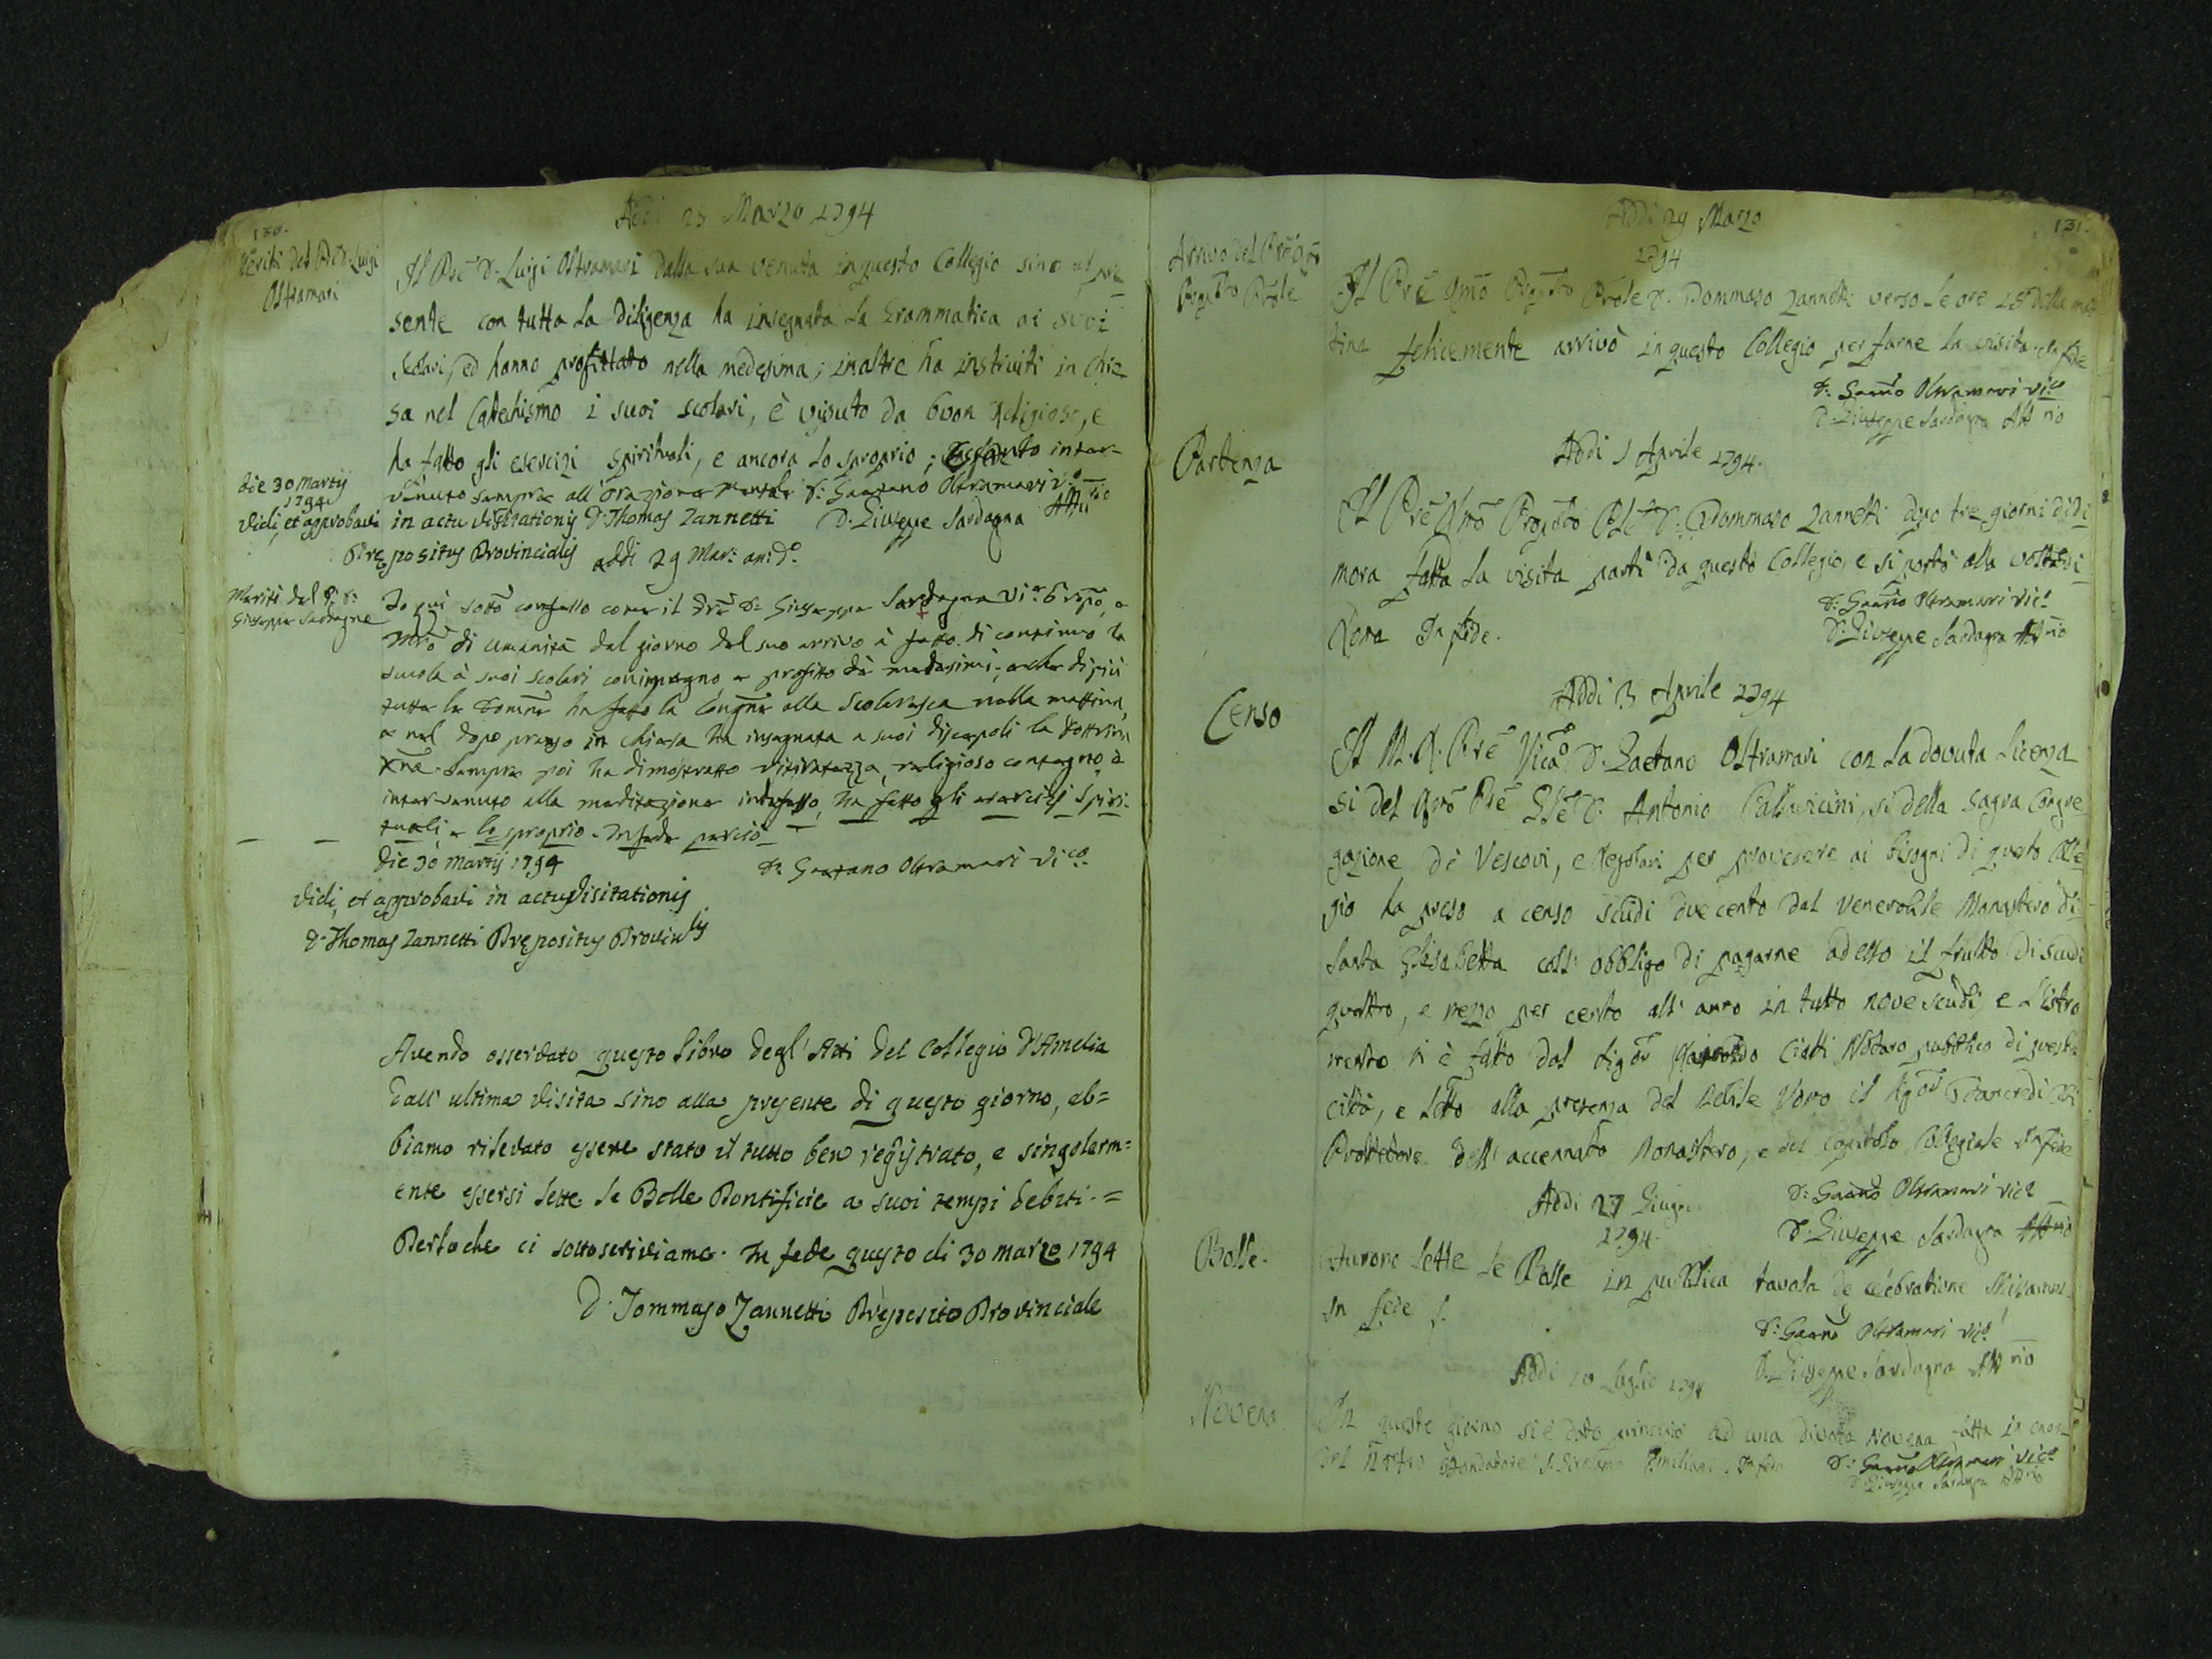 130.
Addi 25 Marzo 1794
Meriti del P. D. Luigi
Oltramari
Il Pre D. Luigi Oltramari dalla sua venuta in questo Collegio sino al pre
sente con tutta la diligenza ha insegnata la Grammatica ai suoi
scolari, ed hanno profittato nella medesima; inoltre ha instruiti in Chie
sa nel Catechismo i suoi scolari, è vissuto da buon Religioso, e
ha fatto gli esercizi spirituali, e ancora lo sproprio; inter-
venuto sempre all'orazione mentale D: Gaetano Oltramari V.o
die 30 Martij
1794
Vidi, et approbavi in actu visitationis D. Thomas Zannetti D. Giuseppe Sardagna Att.rio
Prepositus Provincialis addi 29 Mar: an: d.o
Meriti del P. D:
Giuseppe Sardagna
Io qui sotto confesso come il Pre D: Giuseppe Sardagna Vi: Prepo, e
Mro di umanità dal giorno del suo arrivo à fatto di continuo la
scuola à suoi scolari con impegno e profitto de medesimi, e che di più
tutte le Domen: ha fatto la Congne alla Scolaresca nella mattina,
e nel dopo pranzo in chiesa ha insegnata a suoi discepoli la dottrina
Xna. Sempre poi ha dimostratto ritiratezza, religioso contegno, è
intervenuto alla meditazione indefesso, ha fatto gli esercizj Spiri-
tuali, e lo sproprio. In fede perciò
die 30 Martij 1794 D: Gaetano Oltramari Vi.co
Vidi, et approbavi in actu Visitationis
D. Thomas Zannetti Prepositus Provin.lis
Avendo osservato questo libro degl'Atti del Collegio d'Amelia
dall'ultima visita sino alla presente di questo giorno, ab=
biamo rilevato essere stato il tutto ben registrato, e singolarm=
ente essersi lette le Bolle Pontificie a suoi tempi debiti.=
Perloche ci sottoscriviamo. In fede questo di 30 marzo 1794
D. Tommaso Zannetti Preposito Provinciale
131.
Addi 29 Marzo
1794
Arrivo del Pre Nro
Propsto Prole
Il Pre Nro Propsto Prole D. Tommaso Zannetti verso le ore 15 della mat
tina felicemente arrivò in questo Collegio per farne la visita In fede
D: Gaetno Oltramari Vi.co
D. Giuseppe Sardagna Att.rio
Addi 1 Aprile 1794.
Partenza
Il Pre Nro Propsto Ple D. Tommaso Zannetti dopo tre giorni di di
mora fatta la visita partì da questo Collegio, e si portò alla volta di
Roma In fede.
D: Gaetno Oltramari Vic.o
D. Giuseppe Sardagna Att.rio
Addi 3 Aprile 1794
Censo
Il M. R. Pre Vico D. Gaetano Oltramari con la dovuta licenza
si del Nro Pre Gle D. Antonio Pallavicini, si della Sagra Congre
gazione de Vescovi, e Regolari per provedere ai bisogni di questo Colle
gio ha preso a censo scudi duecento dal Venerabile Monastero di
Santa Elisabetta coll'obbligo di pagarne ad esso il frutto di scudi
quattro, e mezzo per cento all'anno in tutto nove scudi, e l'istro
mento si è fatto dal Sigor Ciatti Notaro pubblico di questa
città, e letto alla presenza del Nobile Uomo il Sigor Tancredi
Protettore dell'accennato Monastero, e del Capitolo Collegiale In fede
D: Gaetno Oltramari Vic.o
D. Giuseppe Sardagna Att.rio
Addi 27 Giugno
1794.
Bolle.
Furono lette le Bolle in pubblica tavola de celebratione Missarum.
In fede
D: Gaetno Oltramari Vic.o
D. Giuseppe Sardagna Att.rio
Addi 10 Luglio 1794
Novena
In questo giorno si è dato principio ad una divota Novena fatta in onore
del Nostro Fondatore S. Girolamo Emiliani. In fede D: Gaetno Oltramari Vic.o
D. Giuseppe Sardagna Att.rio